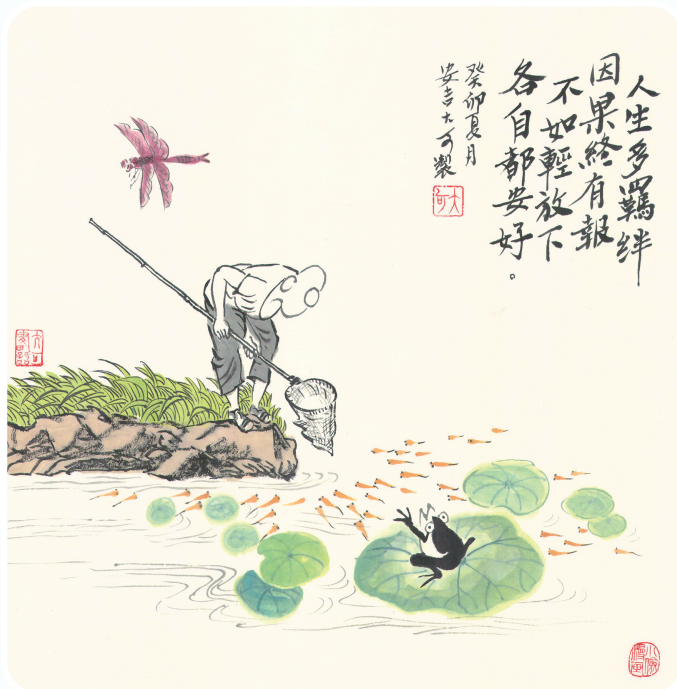 人生多羈绊
因果終有報
不如輕放下
各自都安好。
癸卯夏月
安吉大可製
大可